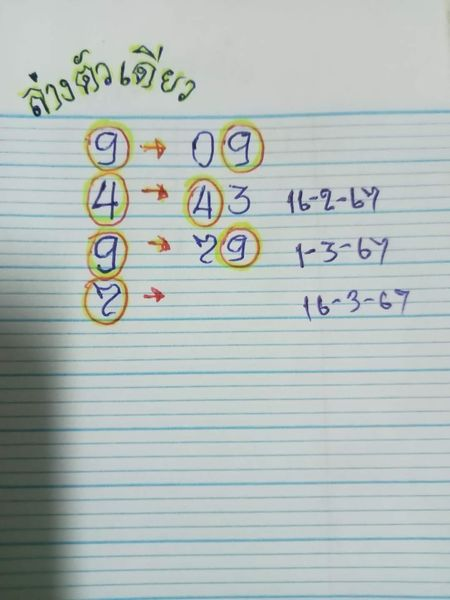 ล่างตัวเดียว
9 → 09
4 → 43 16-2-67
9 → 79 1-3-67
7 → 16-3-67